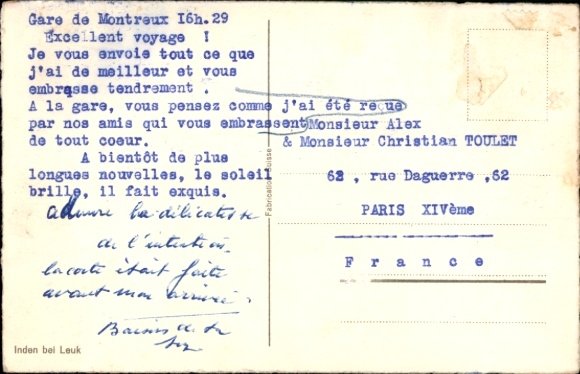 Gare de Montreux I6h.29
Excellent voyage !
Je vous envoie tout ce que
j'ai de meilleur et vous
embrasse tendrement .
A la gare, vous pensez comme j'ai été reçue
par nos amis qui vous embrassent
de tout coeur.
A bientôt de plus
longues nouvelles, le soleil
brille, il fait exquis.
admire la délicatesse
de l'intention,
la carte était faite
avant mon arrivée.
Baisers de ta
Inden bei Leuk
Monsieur Alex
& Monsieur Christian TOULET
62 , rue Daguerre ,62
PARIS XIVème
F r a n c e